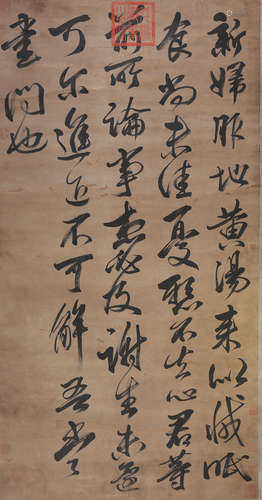 新婦服地黄湯来似减眠
食尚未佳憂懸不去心君等
前所論事想必及謝生未還
可尔進退不可解吾當
書問也